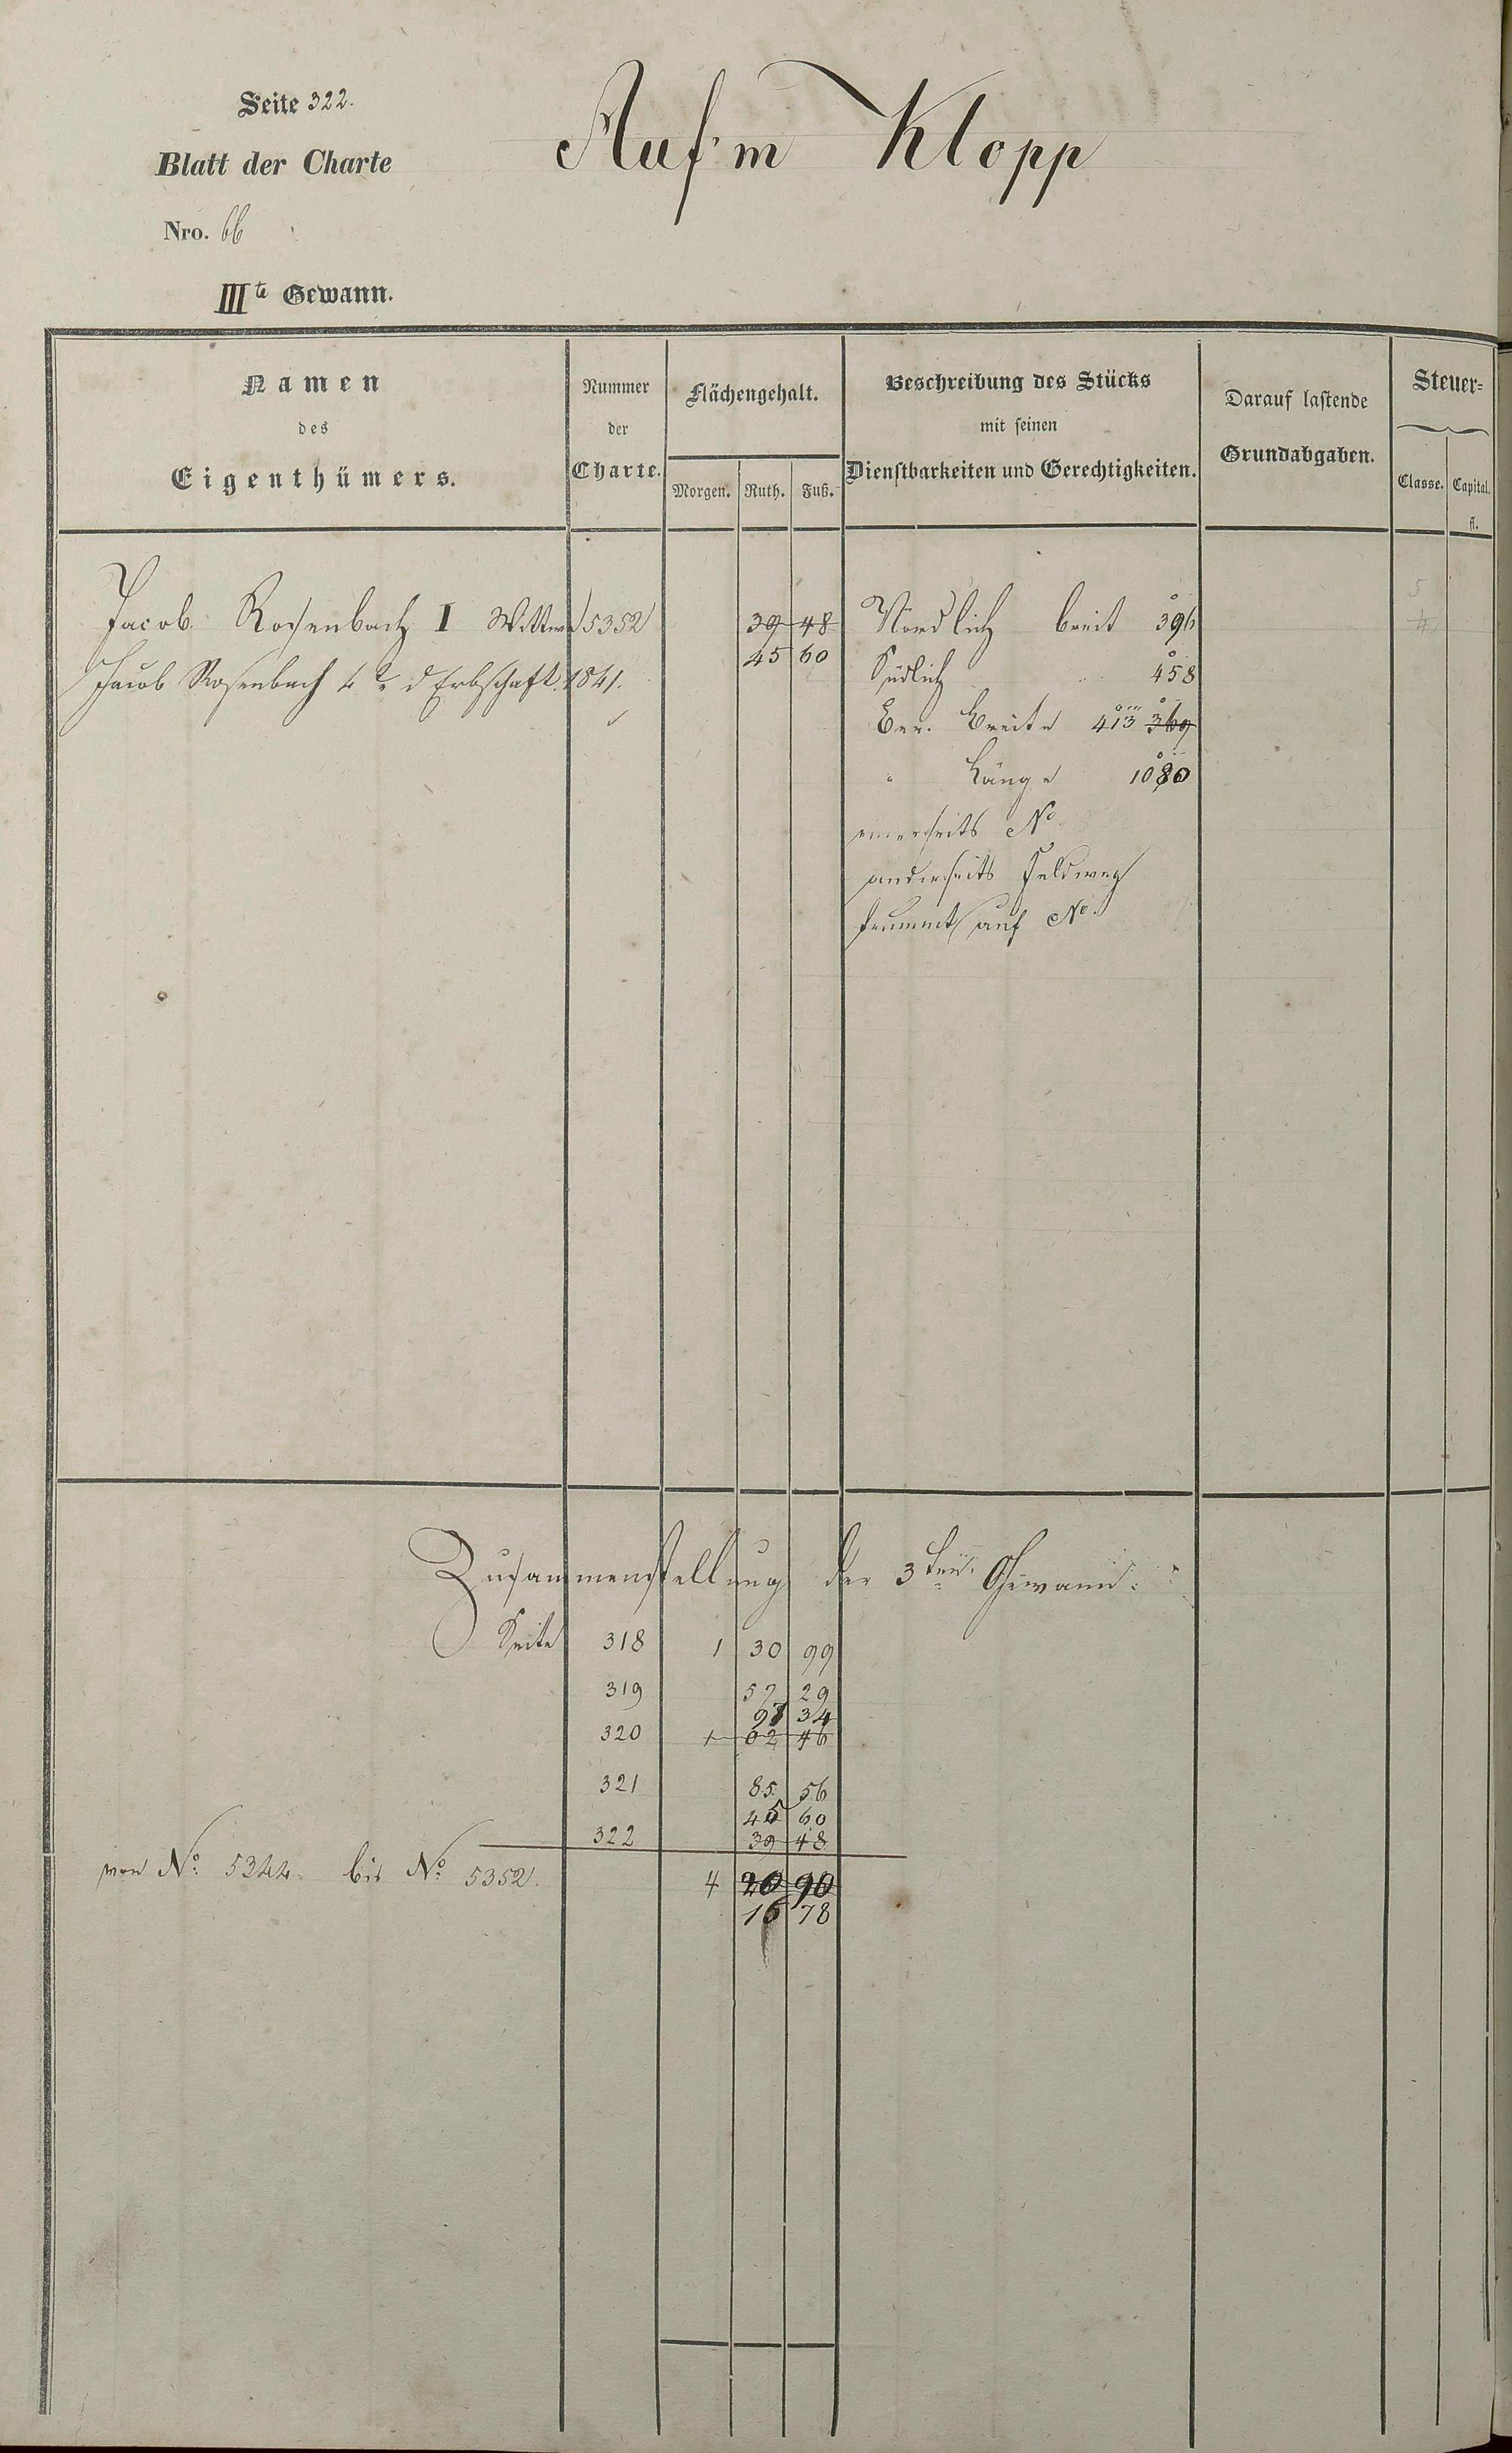 Seite 322.
Auf'm Klopp
Blatt der Charte
Nro. 66
IIIte Gewann.
Namen des Eigenthümers.
Nummer der Charte.
Flächengehalt.
Morgen. Ruth. Fuß.
Beschreibung des Stücks
mit seinen
Dienstbarkeiten und Gerechtigkeiten.
Darauf lastende
Grundabgaben.
Steuer-
Classe. Capital.
fl.
Jacob Rosenbach I Wittwe 5352 39 48 Nördlich breit 396
45 60
Jacob Rosenbach d Erbschaft. 1841. Südlich 458
Ber. Breite 413 369
" Länge 1080
einerseits No
anderseits Feldweg
auf No.
5
4
Zusammenstellung der 3ten Gewann.
Seite 318 1 30 99
319 57 29
98 34
320 1 02 46
321 85 56
45 60
322 39 48
von No. 5344. bis No. 5352. 4 20 90
16 78